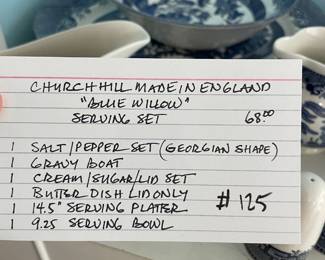 CHURCHHILL MADE IN ENGLAND
"BLUE WILLOW"
SERVING SET 68.00
1 SALT/PEPPER SET (GEORGIAN SHAPE)
1 GRAVY BOAT
1 CREAM/SUGAR/LID SET
1 BUTTER DISH LID ONLY
1 14.5" SERVING PLATTER # 125
1 9.25 SERVING BOWL